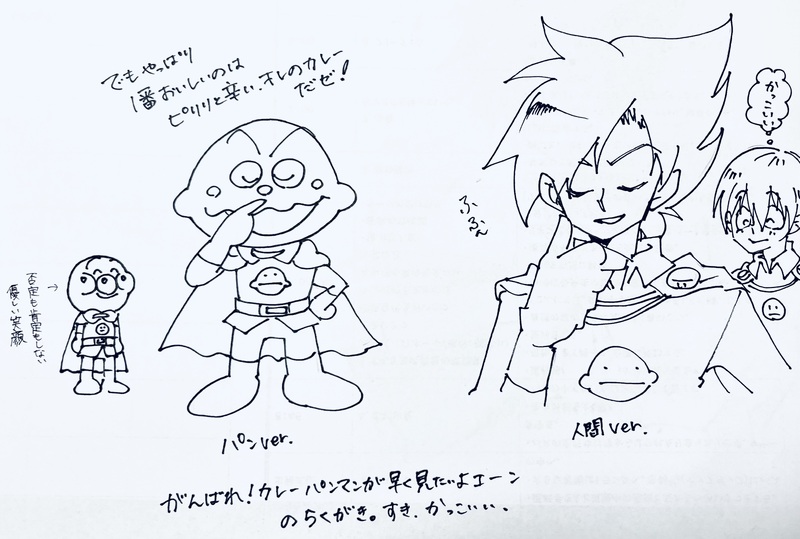 でもやっぱり
1番おいしいのは
ピリリと辛い、オレのカレー
だゼ!
かっこいい
ふふん
否定も肯定もしない
優しい笑顔
パンver.
人間ver.
がんばれ!カレーパンマンが早く見たいよエーン
のらくがき。すき、かっこいい、